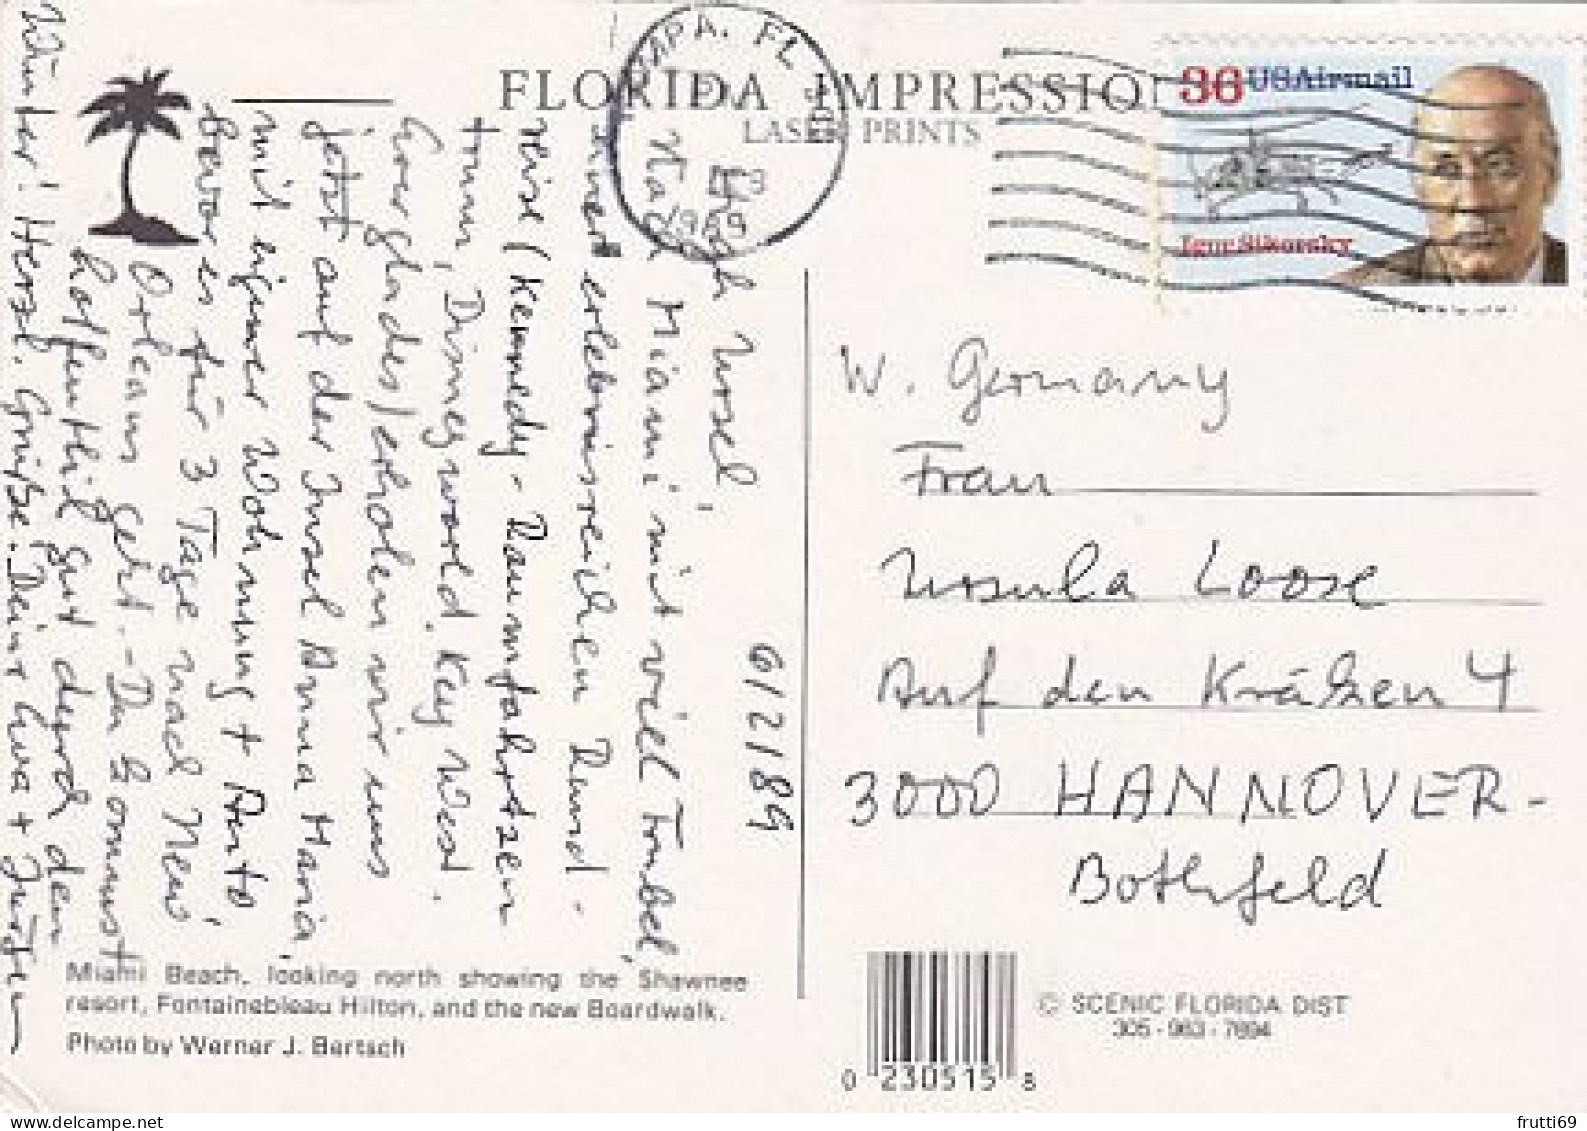 FLORIDA IMPRESSION
LASER PRINTS
TAMPA, FL
1989
36 USAirmail
Igor Sikorsky
6/2/89
Ursel,
Nach Miami mit viel Trubel,
einer erlebnisreichen Rund-
reise (Kennedy-Raumfahrtzen
trum, Disneyworld, Key West,
Everglades) erholen wir uns
jetzt auf der Insel Anna Maria,
mit eigener Wohnung + Auto,
bevor es für 3 Tage nach New
Orleans geht. - Du kommst
hoffentlich gut durch den
Winter! Herzl. Grüße. Deine + Jürgen
W. Germany
Frau
Ursula Loose
Auf den Kräken 4
3000 HANNOVER-
Bothfeld
Miami Beach, looking north showing the Shawnee
resort, Fontainebleau Hilton, and the new Boardwalk.
Photo by Werner J. Bertsch
© SCENIC FLORIDA DIST
305-963-7694
0 230515 8
frutti69